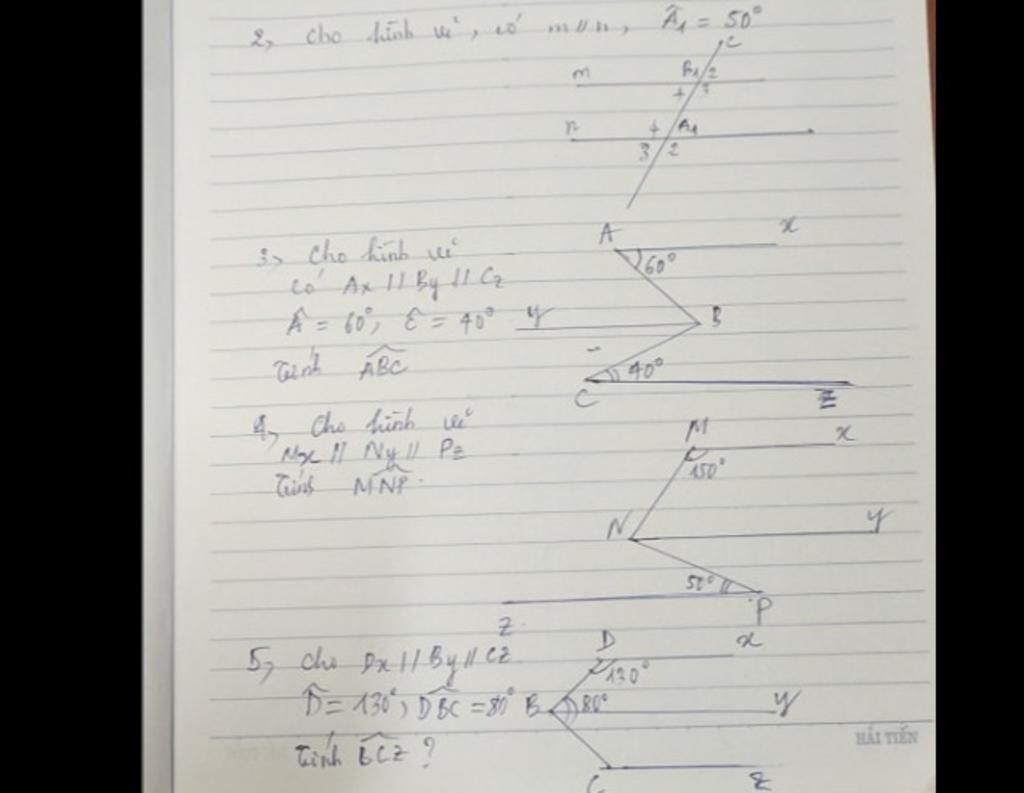 2, Cho hình vẽ, có m // n, Â₁ = 50°
c
m B1 2
4 3
n 4 A1
3 2
3, Cho hình vẽ
có Ax // By // Cz
Â = 60°, Ĉ = 40°
Tính ABC
A x
60°
y B
40°
C z
4, Cho hình vẽ
Mx // Ny // Pz
Tính MNP.
M x
150°
N y
50°
z P
5, Cho Dx // By // Cz
D̂ = 130°, DBC = 80°
Tính BCz ?
D x
130°
B 80° y
C z
HẢI TIẾN